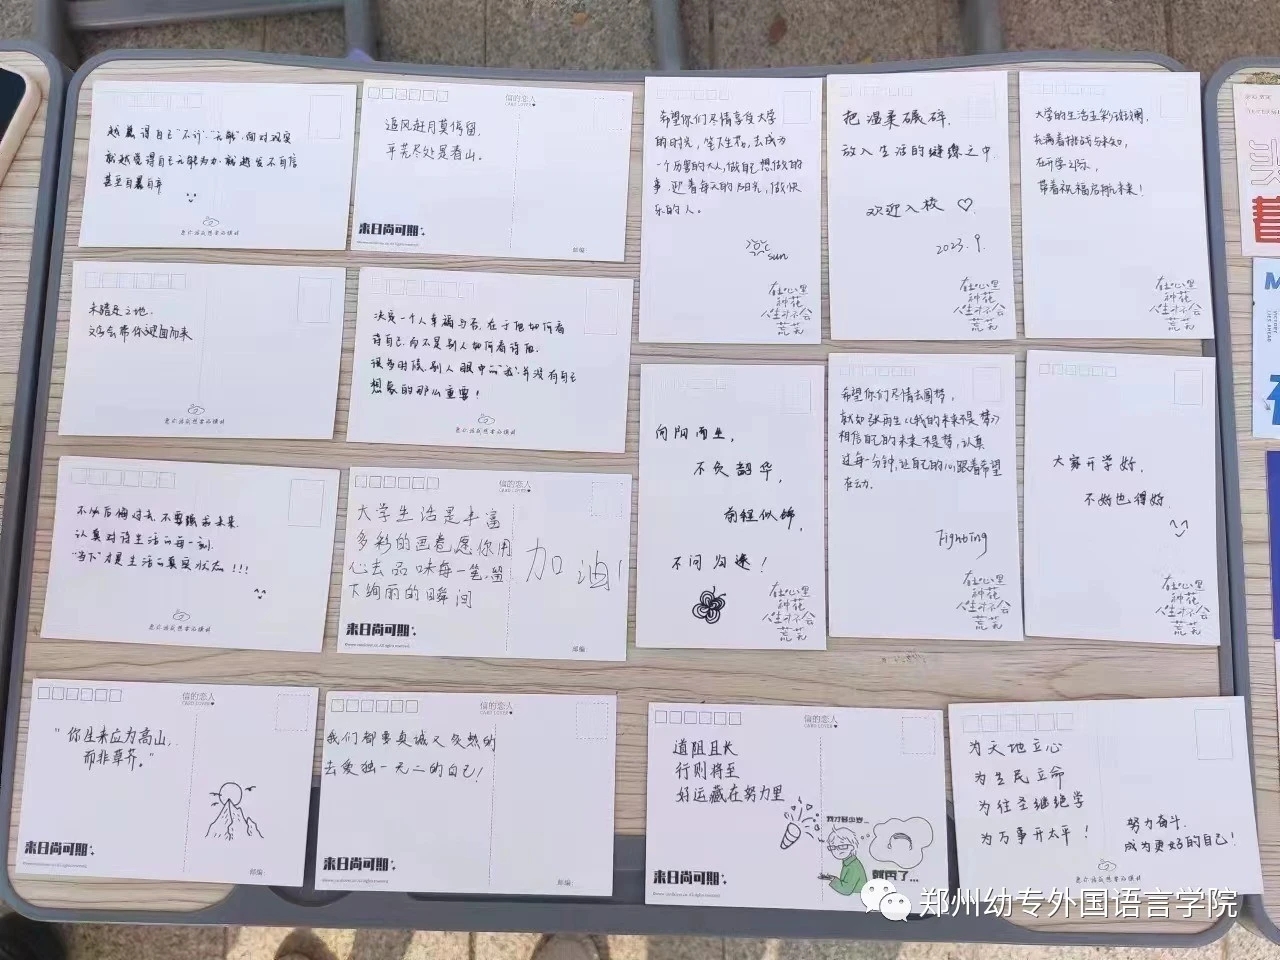 越觉得自己"不行""无能",面对现实
就越觉得自己无能为力.就越发不自信
甚至自暴自弃
信的恋人
CARD LOVER
追风赶月莫停留,
平芜尽处是春山。
来日尚可期:
邮编:
希望你们尽情享受大学
的时光,笑对生花,去成为
一个厉害的大人,做自己想做的
事.迎着每天的阳光,做快
乐的人。
sun
在心里
种花
人生才不会
荒芜
把温柔碾碎,
放入生活的缝隙之中.
欢迎入校♡
2023.9.
在心里
种花
人生才不会
荒芜
大学的生活多彩斑斓,
充满着挑战与未知,
在开学之际,
带着祝福启航未来!
在心里
种花
人生才不会
荒芜
未踏足之地.
文字会带你迎面而来
决定一个人幸福与否,在于他如何看
待自己,而不是别人如何看待他.
很多时候,别人眼中的"我"并没有自己
想象的那么重要!
向阳而生,
不负韶华,
前程似锦,
不问归途!
在心里
种花
人生才不会
荒芜
希望你们尽情去圆梦,
就如张雨生《我的未来不是梦》
相信自己的未来不是梦,认真
过每一分钟,让自己的心跟着希望
在动.
Fighting
在心里
种花
人生才不会
荒芜
大家开学好,
不好也得好
在心里
种花
人生才不会
荒芜
不必后悔过去,不要强求未来.
认真对待生活的每一刻.
"当下"才是生活的真实状态!!!
信的恋人
CARD LOVER
大学生活是丰富
多彩的画卷愿你用
心去品味每一笔,留
下绚丽的瞬间
加油!
来日尚可期:
邮编:
信的恋人
CARD LOVER
"你生来应为高山,
而非草芥。"
来日尚可期:
邮编:
信的恋人
CARD LOVER
我们都要真诚又炙热的
去爱独一无二的自己!
来日尚可期:
邮编:
信的恋人
CARD LOVER
道阻且长
行则将至
好运藏在努力里
我才多少岁...
就秃了...
来日尚可期:
为天地立心
为生民立命
为往圣继绝学
为万事开太平!
努力奋斗.
成为更好的自己!
郑州幼专外国语言学院